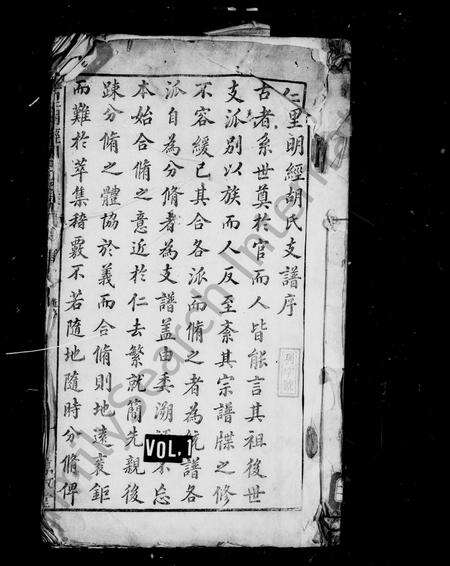 仁里明經胡氏支譜序
古者系世奠於官而人皆能言其祖後世
支派別以族而人反至紊其宗譜牒之修
不容緩已其合各派而脩之者為統譜各
派自為分脩者為支譜蓋由委溯源不忘
本始合脩之意近於仁去繁就簡先親後
踈分脩之體協於義而合脩則地遠衺鉅
而難於萃集稽覈不若隨地隨時分脩俾
VOL.1
FamilySearch International